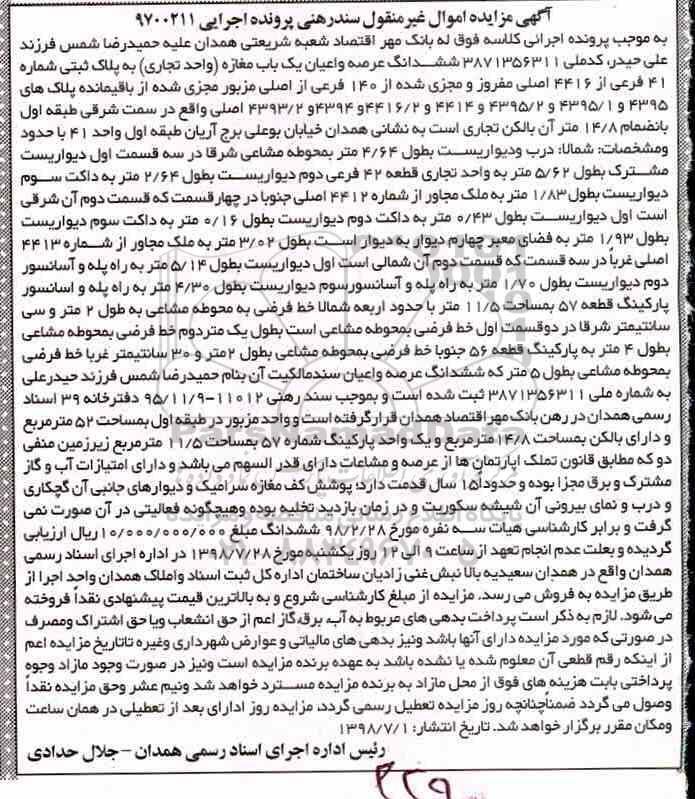 آگهی مزایده اموال غیرمنقول سندرهنی پرونده اجرایی ۹۷۰۰۲۱۱
به موجب پرونده اجرائی کلاسه فوق له بانک مهر اقتصاد شعبه شریعتی همدان علیه حمیدرضا شمس فرزند
علی حیدر، کدملی ۳۸۷۱۳۵۶۳۱۱ ششدانگ عرصه واعیان یک باب مغازه (واحد تجاری) به پلاک ثبتی شماره
۴۱ فرعی از ۴۴۱۶ اصلی مفروز و مجزی شده از ۱۴۰ فرعی از اصلی مزبور مجزی شده از باقیمانده پلاک های
۴۳۹۵ و ۴۳۹۵/۱ و ۴۳۹۵/۲ و ۴۴۱۴ و ۴۴۱۶/۲ و ۴۳۹۴و ۴۳۹۳/۲ اصلی واقع در سمت شرقی طبقه اول
بانضمام ۱۴/۸ متر آن بالکن تجاری است به نشانی همدان خیابان بوعلی برج آریان طبقه اول واحد ۴۱ با حدود
ومشخصات: شمالا: درب ودیواریست بطول ۴/۶۴ متر بمحوطه مشاعی شرقا در سه قسمت اول دیواریست
مشترک بطول ۵/۶۲ متر به واحد تجاری قطعه ۴۲ فرعی دوم دیواریست بطول ۲/۶۴ متر به داکت سوم
دیواریست بطول ۱/۸۳ متر به ملک مجاور از شماره ۴۴۱۲ اصلی جنوبا در چهارقسمت که قسمت دوم آن شرقی
است اول دیواریست بطول ۰/۴۳ متر به داکت دوم دیواریست بطول ۰/۱۶ متر به داکت سوم دیواریست
بطول ۱/۹۳ متر به فضای معبر چهارم دیوار به دیوار است بطول ۳/۰۲ متر به ملک مجاور از شماره ۴۴۱۳
اصلی غرباً در سه قسمت که قسمت دوم آن شمالی است اول دیواریست بطول ۵/۱۴ متر به راه پله و آسانسور
دوم دیواریست بطول ۱/۷۰ متر به راه پله و آسانسورسوم دیواریست بطول ۴/۳۰ متر به راه پله و اسانسور
پارکینگ قطعه ۵۷ بمساحت ۱۱/۵ متر با حدود اربعه شمالا خط فرضی به محوطه مشاعی به طول ۲ متر و سی
سانتیمتر شرقا در دوقسمت اول خط فرضی بمحوطه مشاعی است بطول یک متردوم خط فرضی بمحوطه مشاعی
بطول ۴ متر به پارکینگ قطعه ۵۶ جنوبا خط فرضی بمحوطه مشاعی بطول ۲متر و ۳۰ سانتیمتر غربا خط فرضی
بمحوطه مشاعی بطول ۵ متر که ششدانگ عرصه واعیان سندمالکیت آن بنام حمیدرضا شمس فرزند حیدرعلی
به شماره ملی ۳۸۷۱۳۵۶۳۱۱ ثبت شده است و بموجب سند رهنی ۱۱۰۱۲-۹۵/۱۱/۹ دفترخانه ۳۹ اسناد
رسمی همدان در رهن بانک مهر اقتصاد همدان قرارگرفته است و واحد مزبور در طبقه اول بمساحت ۵۲ مترمربع
و دارای بالکن بمساحت ۱۴/۸ مترمربع و یک واحد پارکینگ شماره ۵۷ بمساحت ۱۱/۵ مترمربع زیرزمین منفی
دو که مطابق قانون تملک اپارتمان ها از عرصه و مشاعات دارای قدر السهم می باشد و دارای امتیازات آب و گاز
مشترک و برق مجزا بوده و حدوداً۱۵ سال قدمت دارد؛ پوشش کف مغازه سرامیک و دیوارهای جانبی آن گچکاری
و درب و نمای بیرونی آن شیشه سکوریت و در زمان بازدید تخلیه بوده وهیچگونه فعالیتی در آن صورت نمی
گرفت و برابر کارشناسی هیات سه نفره مورخ ۹۸/۲/۲۸ ششدانگ مبلغ ۱۰/۰۰۰/۰۰۰/۰۰۰ ریال ارزیابی
گردیده و بعلت عدم انجام تعهد از ساعت ۹ الی ۱۲ روز یکشنبه مورخ ۱۳۹۸/۷/۲۸ در اداره اجرای اسناد رسمی
همدان واقع در همدان سعیدیه بالا نبش غنی زادیان ساختمان اداره کل ثبت اسناد واملاک همدان واحد اجرا از
طریق مزایده به فروش می رسد. مزایده از مبلغ کارشناسی شروع و به بالاترین قیمت پیشنهادی نقداً فروخته
می شود. لازم به ذکر است پرداخت بدهی های مربوط به آب، برق،گاز اعم از حق انشعاب ویا حق اشتراک ومصرف
در صورتی که مورد مزایده دارای آنها باشد ونیز بدهی های مالیاتی و عوارض شهرداری وغیره تاتاریخ مزایده اعم
از اینکه رقم قطعی آن معلوم شده یا نشده باشد به عهده برنده مزایده است ونیز در صورت وجود مازاد وجوه
پرداختی بابت هزینه های فوق از محل مازاد به برنده مزایده مسترد خواهد شد ونیم عشر وحق مزایده نقداً
وصول می گردد ضمناًچنانچه روز مزایده تعطیل رسمی گردد، مزایده روز اداری بعد از تعطیلی در همان ساعت
ومکان مقرر برگزار خواهد شد. تاریخ انتشار: ۱۳۹۸/۷/۱
رئیس اداره اجرای اسناد رسمی همدان – جلال حدادی